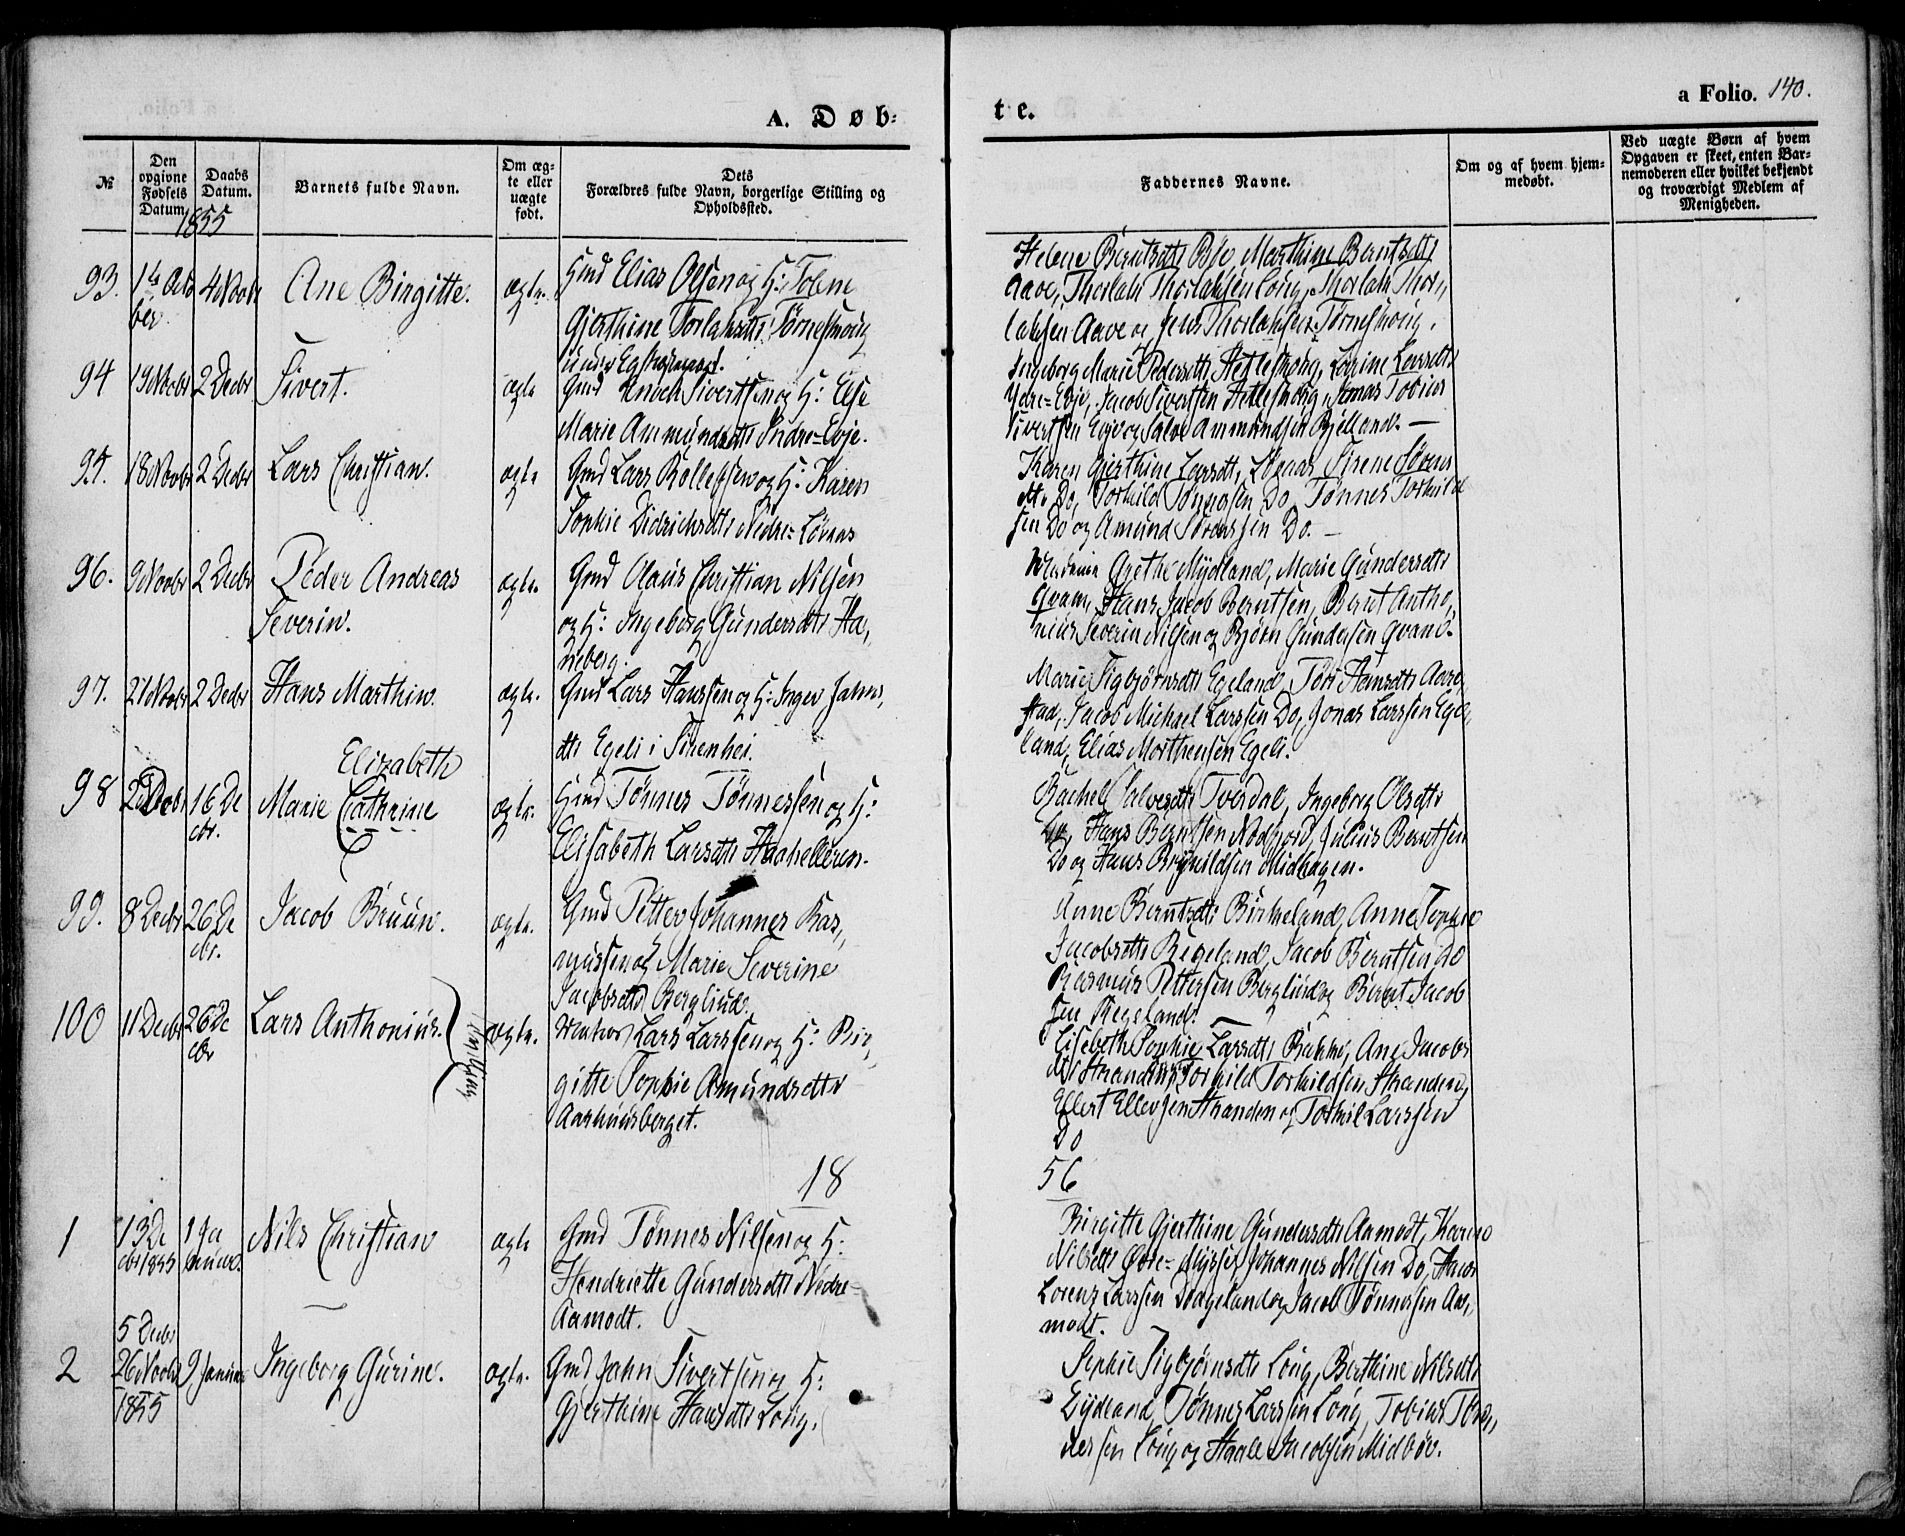 A. Døb-
te.
a Folio. 140.
№
Den opgivne Fødsels Datum.
Daabs Datum.
1855
Barnets fulde Navn.
Om ægte eller uægte født.
Dets
Forældres fulde Navn, borgerlige Stilling og
Opholdssted.
Faddernes Navne.
Om og af hvem hjem-
medøbt.
Ved uægte Børn af hvem
Opgaven er skeet, enten Bar-
nemoderen eller hvilket bekjendt
og troværdigt Medlem af
Menigheden.
93. 4 Novbr Ane Birgitte. ægte.
Gmd Elias Olsen og H: Tolene
Gjerthine Torlaksdtr
Helene Berntsdtr Bøe, Marthine Berntsdtr
Aave, Thorlak Thorlaksen Løvig, Thorlak Thor,,
laksen Aave og Jens Thorlaksen
94 19 Novbr 2 Decbr Sivert. ægte
Gmd Enoch Sivertsen og H: Else
Marie Ammundsdtr Indre-Evje.
Ingeborg Marie Pedersdtr Lovrine Larsdtr
Ydre-Evje, Jacob Sivertsen Jonas Tobias
Sivertsen Evje og Salve Ammundsen Bjelland. —
95. 18 Novbr 2 Decbr Lars Christian. ægte
Gmd Lars Rollefsen og H: Karen
Sophie Didrichsdtr Nedre-Løvaas
Karen Gjerthine Larsdtr Løvaas, Sirene Søvens
dtr Do, Torkild Tønnesen Do, Tønnes Torkild
sen Do og Amund Do. —
96. 9 Novbr 2 Decbr Peder Andreas
Severin. ægte.
Gmd Olaus Christian Nilsen
og H: Ingeborg Gundersdtr Ha,,
neberg.
Grethe Mydland, Marie Gundersdtr
Qvam, Hans Jacob Berntsen, Bernt Antho,,
nius Severin Nilsen og Bjørn Gundersen Qvam.
97. 21 Novbr 2 Decbr Hans Marthin. ægte.
Gmd Lars Hanssen og H: Inger Jahns,,
dtr Egeli i Sirenhei.
Marie Sigbjørnsdtr Egeland, Tori
stad, Jacob Michael Larssen Do, Jonas Larssen Ege,,
land, Elias Morthensen Egeli.
98 16 De
cbr. Elizabeth
Marie Cathrine ægte.
Gmd Tønnes Tønnessen og H:
Elisabeth Larsdtr Haahelleren.
Rachel Salvesdtr Tverdal, Ingeborg Olsdtr
Do, Hans Berntsen Rødfjord, Julius Berntsen
Do og Hans Brynildsen Midhagen.
99. 8 Decbr 26 De
cbr. Jacob Bruun. ægte.
Gmd Petter Johannes Ras,,
mussen og Marie Severine
Jacobsdtr Berglund.
Anne Berntsdtr Birkeland, Anne Sophie
Jacobsdtr Regeland, Jacob Berntsen Do
Rasmus Pettersen Berglund og Bernt Jacob
sen Regeland.
100 11 Decbr 26 De
cbr Lars Anthonius. } Tvilling ægte.
Lars Larssen og H: Bir,,
gitte Sophie Amundsdtr
Aarhuusberget.
Elisebeth Sophie Larsdtr Bakke, Ane Jacobs
dtr Stranden, Torkild Torkildsen Stranden,
Ellert Ellertsen Stranden og Torkil Larssen
Do
18
56
1 13 De
cbr 1855 1 Ja
nuar. Nils Christian ægte
Gmd Tønnes Nilsen og H:
Hendriette Gundersdtr Nedre-
Aamodt.
Birgitte Gjerthine Gundersdtr Aamodt, Karine
Nilsdtr Øvre- Johannes Nilsen Do, Hans
Lorenz Larssen og Jacob Tønnessen Aa,,
modt.
2 5 Decbr
26 Novbr
1855 9 Januar Ingeborg Gurine. ægte.
Gmd Jahn Sivertsen og H:
Gjerthine Hansdtr Løvig.
Sophie Sigbjørnsdtr Løvig, Berthine Nilsdtr
Eydeland, Tønnes Larssen Løvig, Tobias Tøn,,
nessen Løvig og Staale Jacobsen Midbøe.